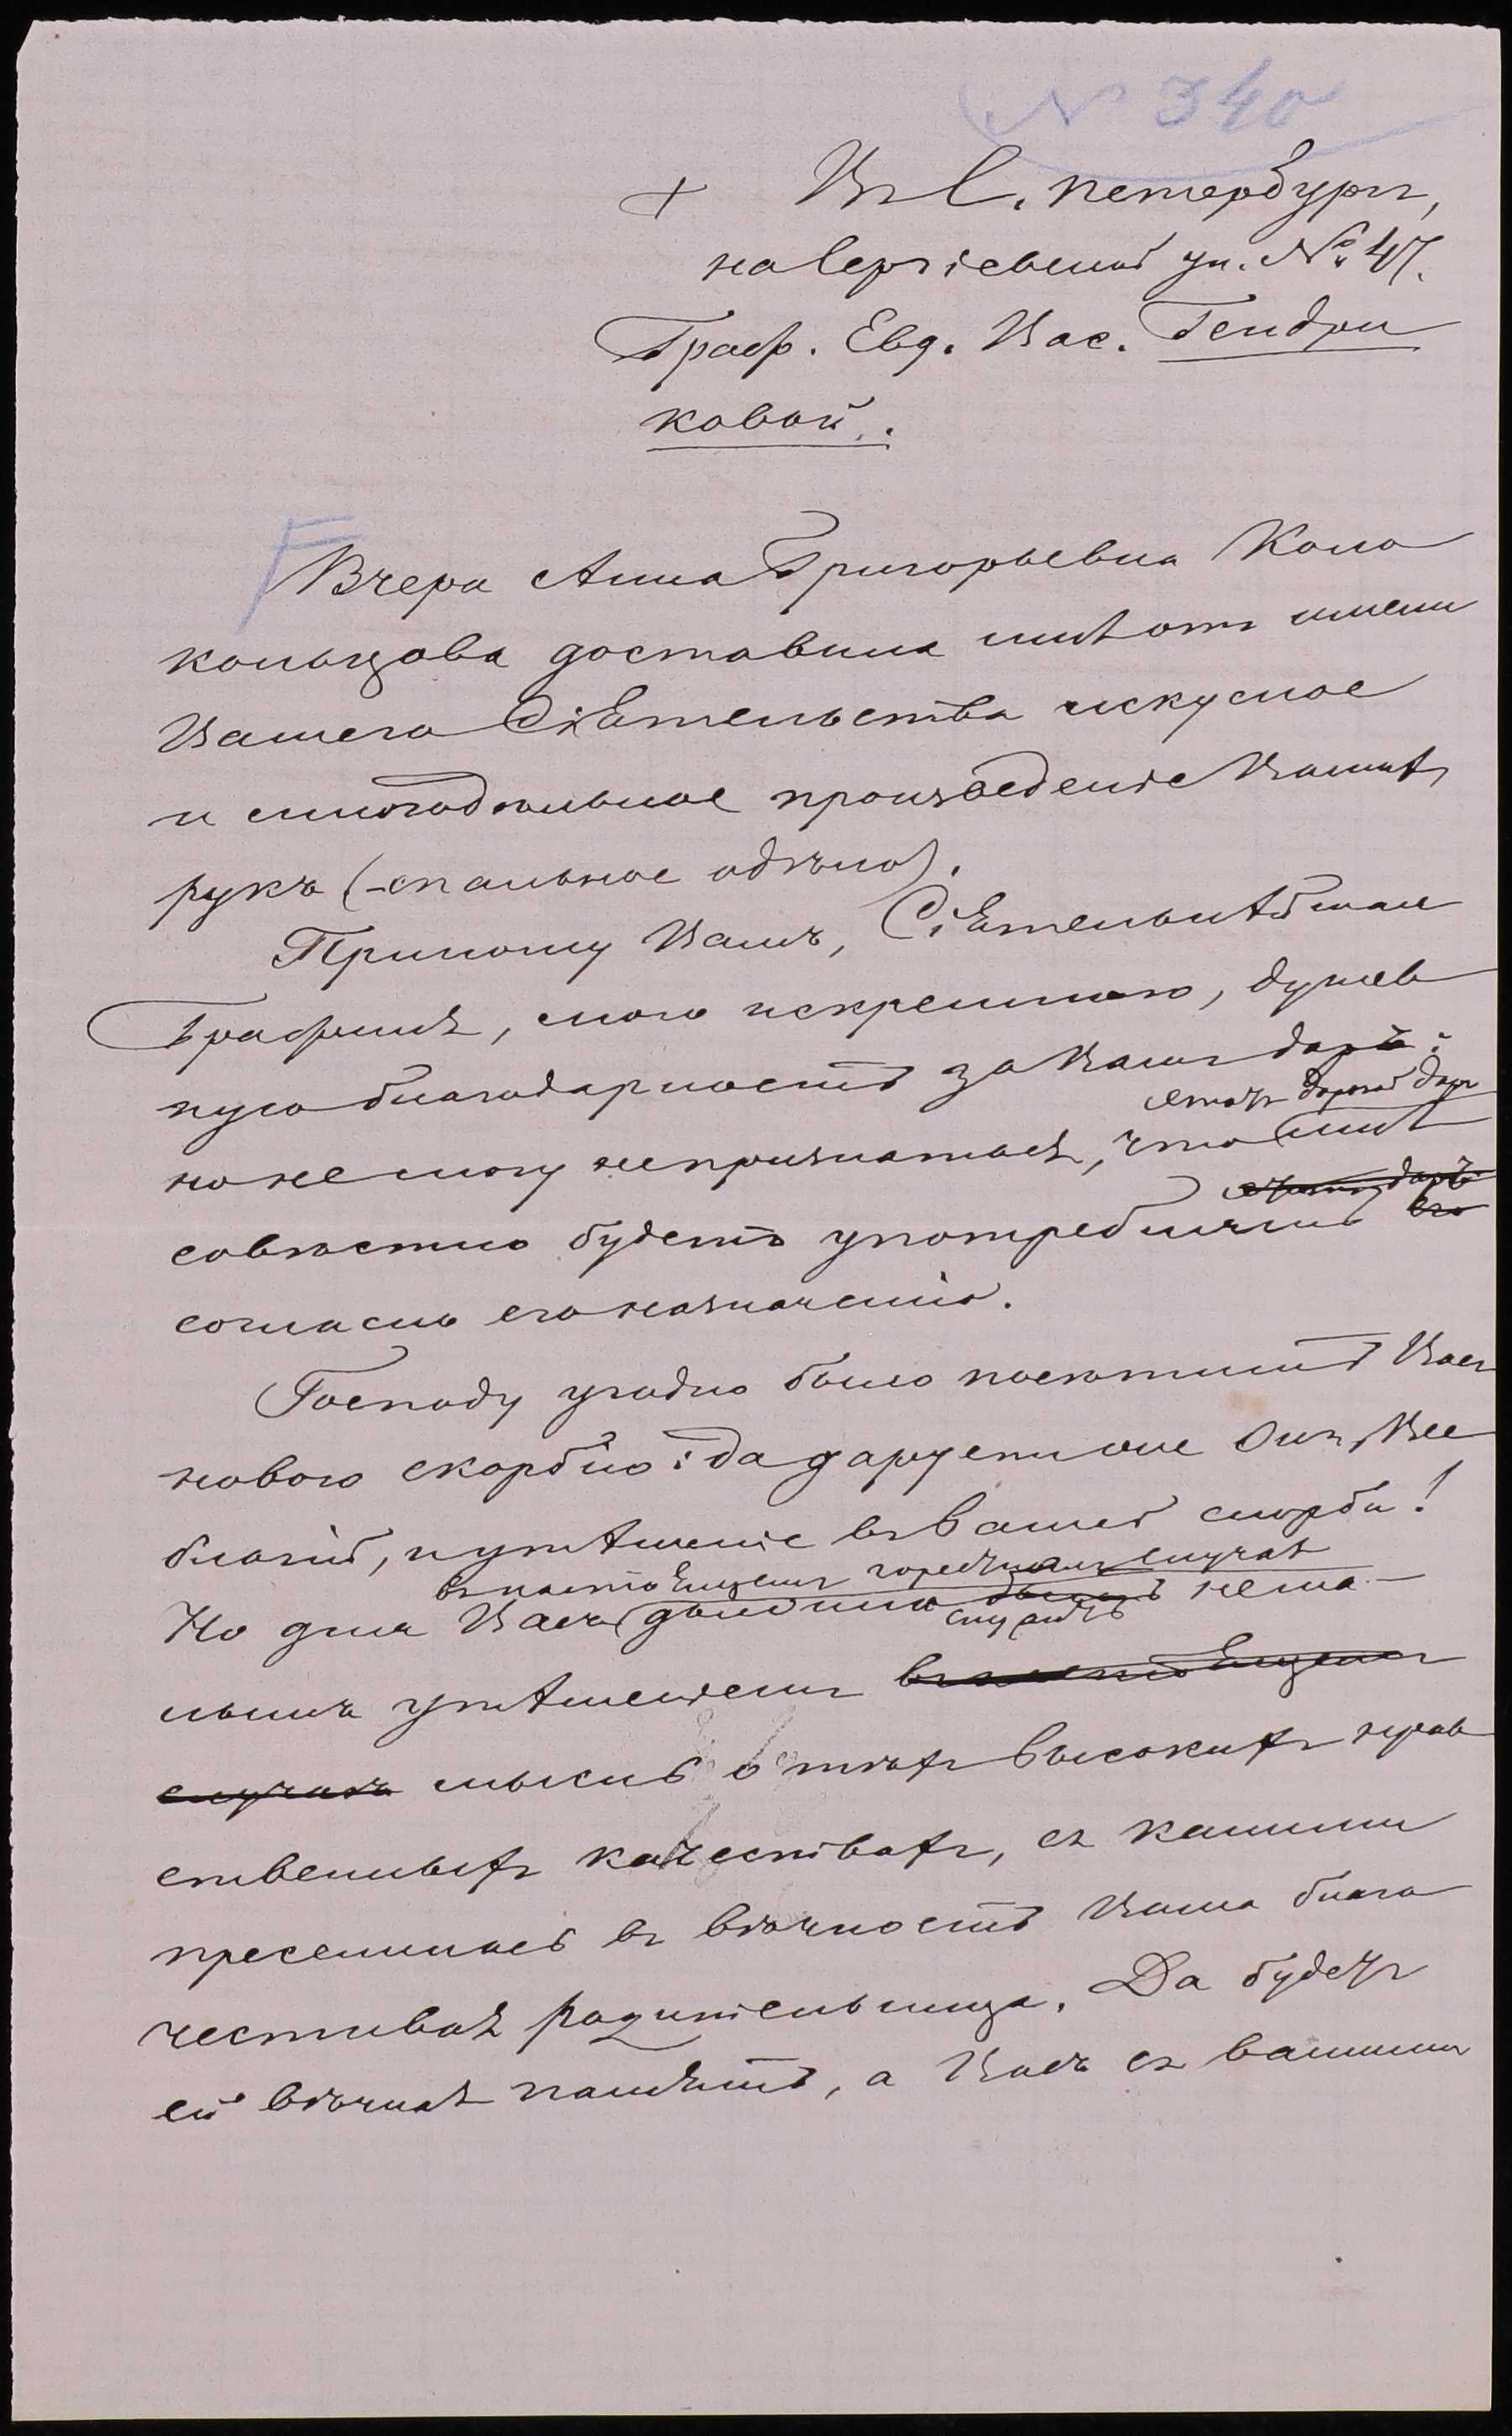 № 340
+ Въ С. петербургъ,
на Сергіевской ул. № 47.
Граф. Евд. Вас. Гендри
ковой.
Вчера Анна Григорьевна Коло
кольцова доставила мнѣ отъ имени
Вашего Сіятельства искусное
и многодѣльное произведеніе Вашихъ
рукъ (–спальное одѣяло).
Приношу Вамъ, Сіятельнѣйшая
Графиня, мою искреннюю, душев
ную благодарность за Вашъ даръ:
столь дорогой даръ
но не могу не признаться, что мнѣ
даръ
совѣстно будетъ употреблять его
согласно его назначенію.
Господу угодно было посѣтить Васъ
новою скорбію: да даруетъ же Онъ, Все
благій, и утѣшеніе въ Вашей скорби!
въ настоящемъ горестномъ случаѣ
Но для Васъ должно быть нема–
служить
лымъ утѣшеніемъ въ настоящемъ
случаѣ мысль о тѣхъ высокихъ нрав
ственныхъ качествахъ, съ какими
преселилась въ вѣчность Ваша благо
честивая родительница. Да будетъ
ей вѣчная память, а Васъ съ вашими